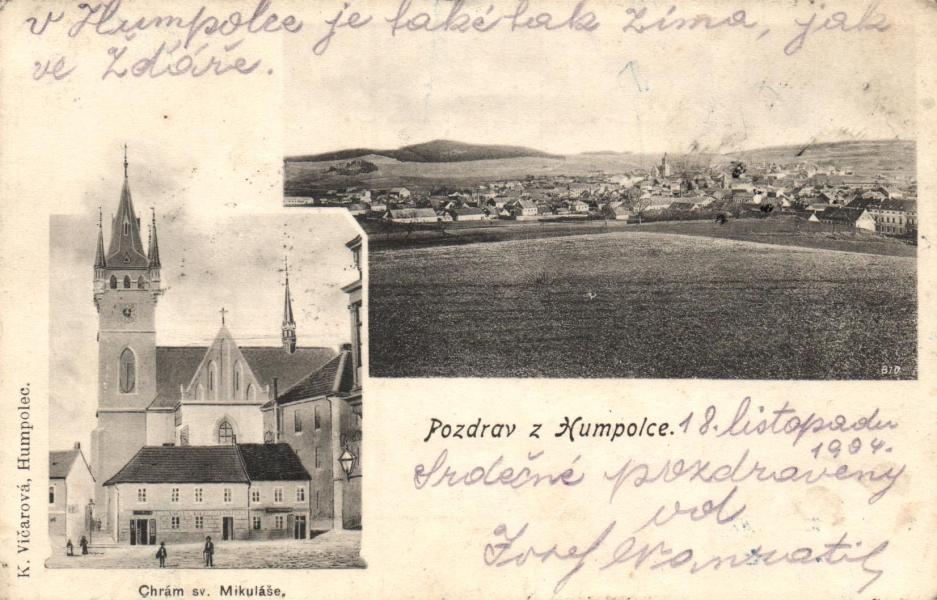 v Humpolce je také tak zima, jak
ve Žďáře.
BTD.
Pozdrav z Humpolce. 18. listopadu
1904.
Srdečné pozdraveny
od
Josef
K. Vičarová, Humpolec.
Chrám sv. Mikuláše,